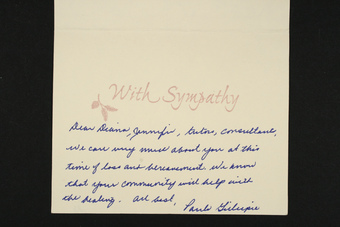 With Sympathy
Dear Diana, Jennifer, tutors, consultant,
we care very much about you at this
time of loss and bereavement. We know
that your community will help with
the healing. All best, Paula Gillespie